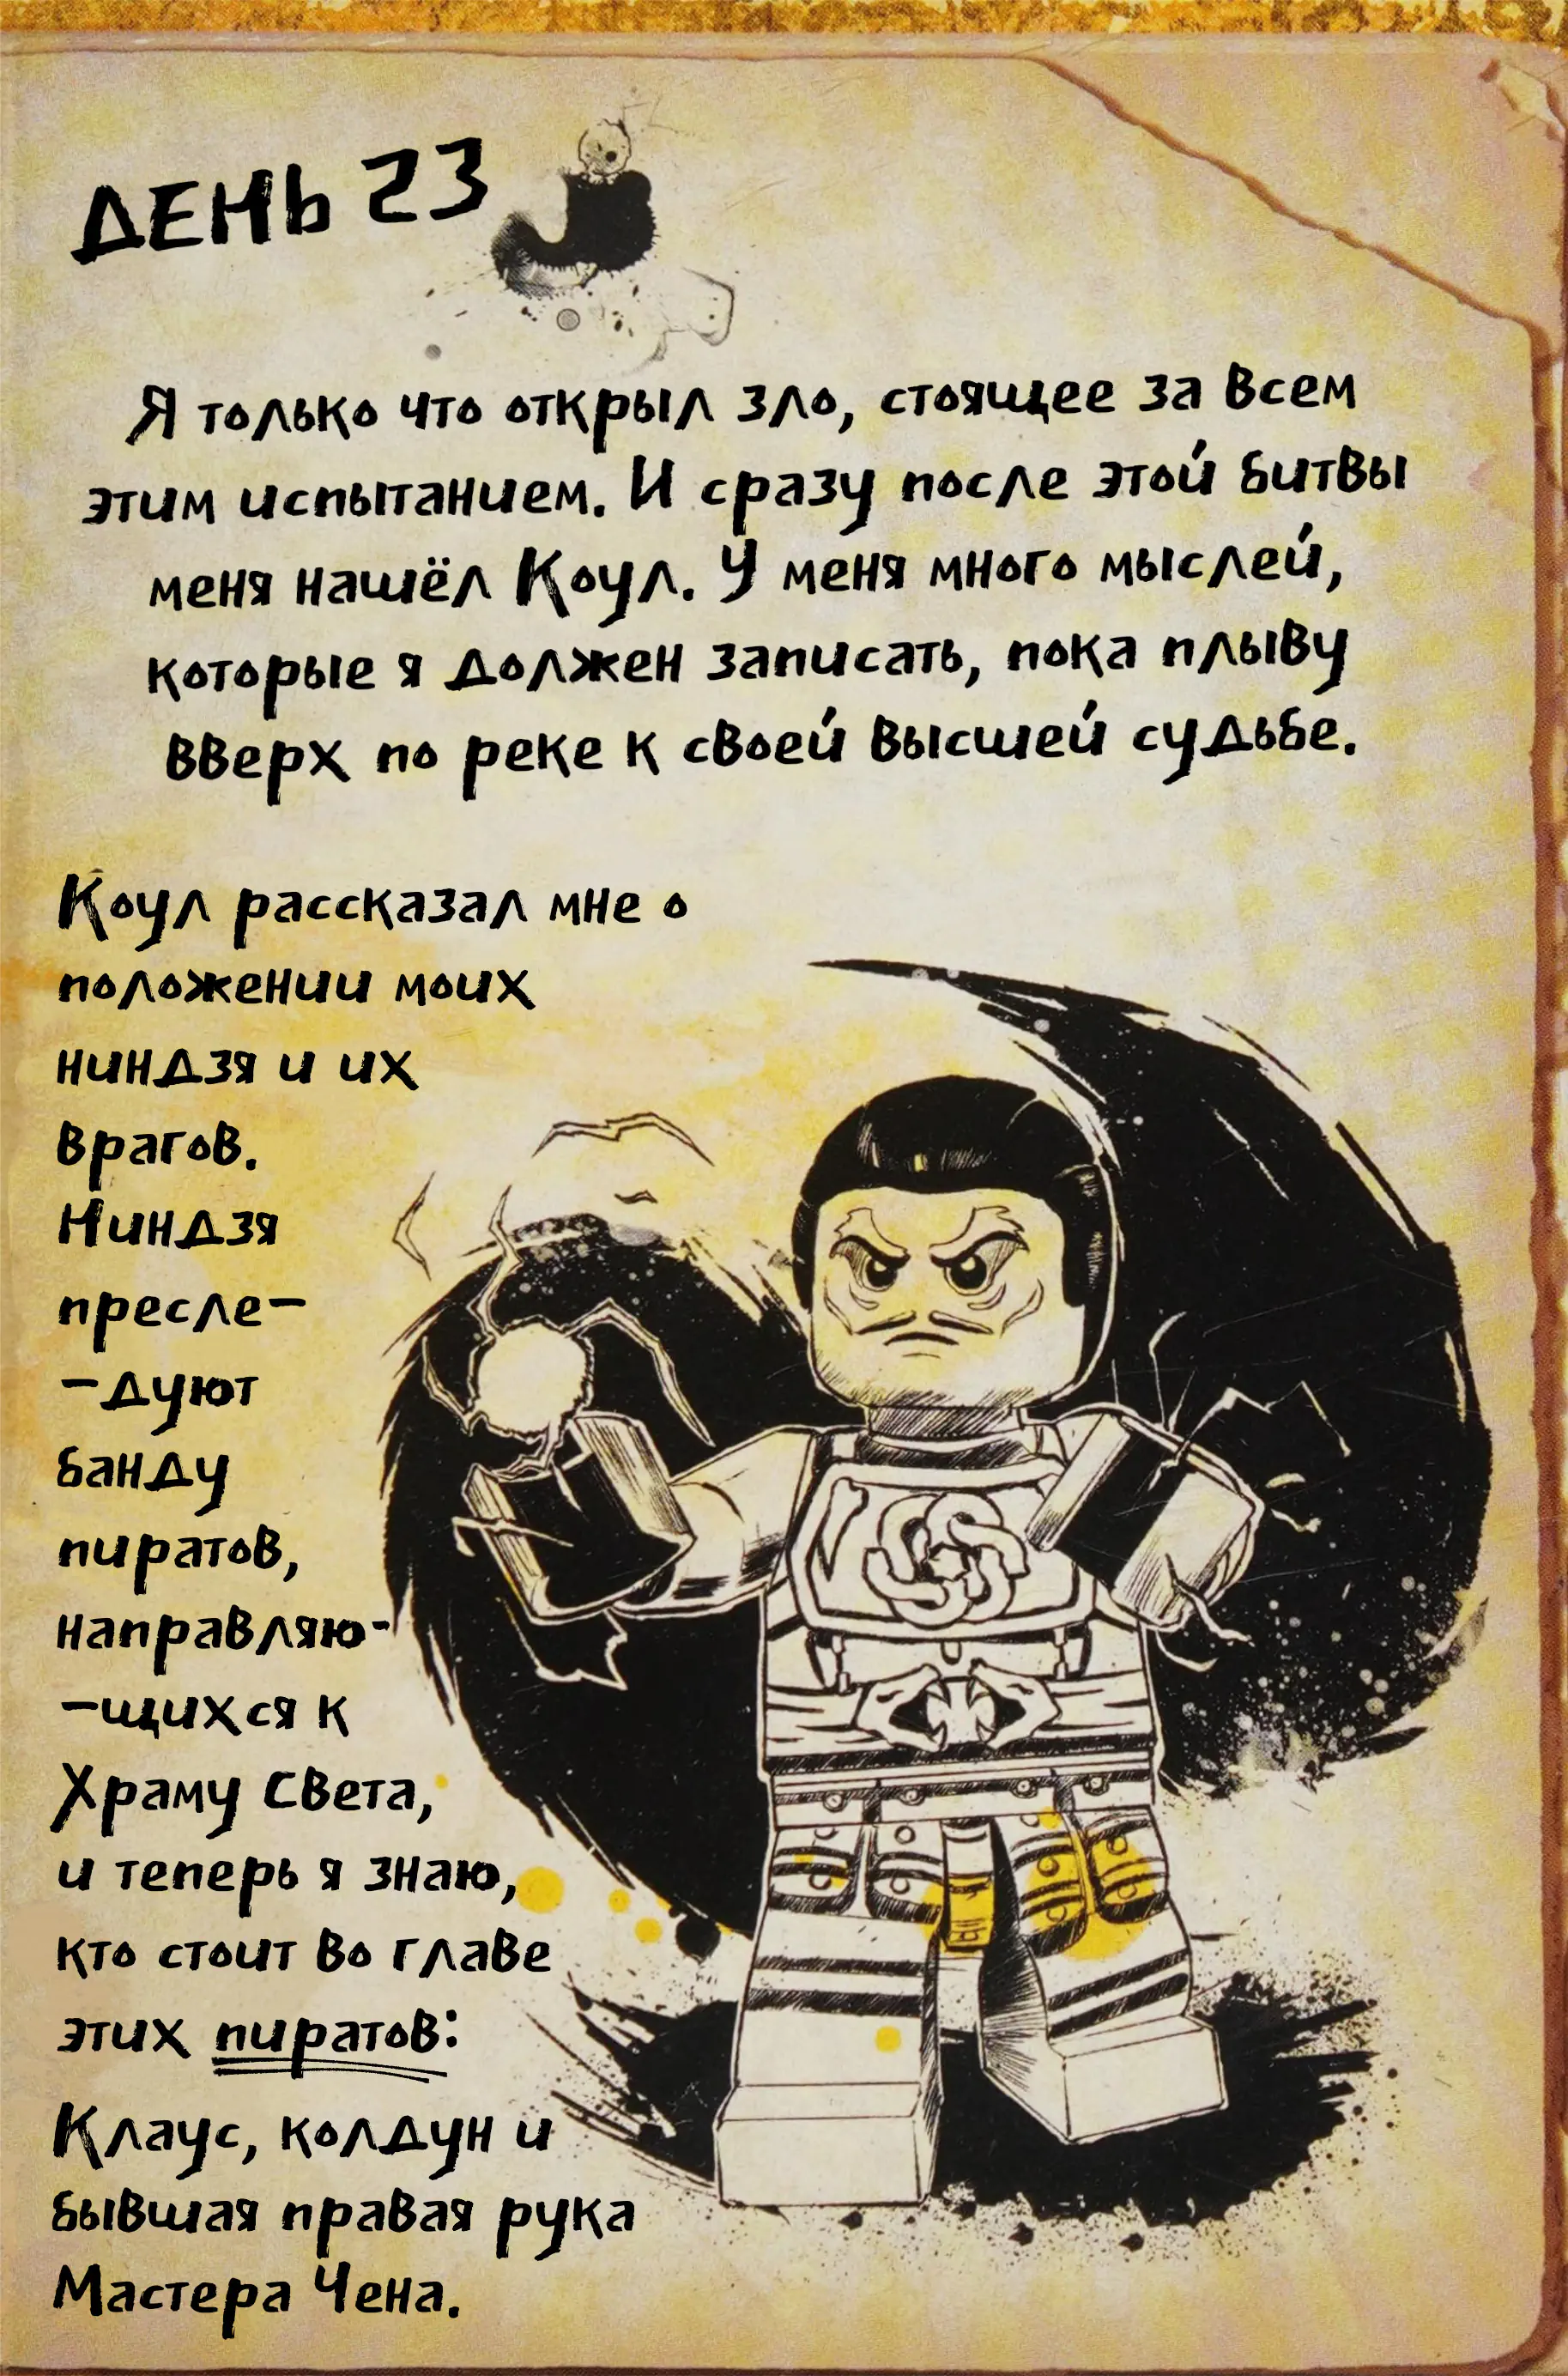 ДЕНЬ 23
Я только что открыл зло, стоящее за всем
этим испытанием. И сразу после этой битвы
меня нашёл Коул. У меня много мыслей,
которые я должен записать, пока плыву
вверх по реке к своей высшей судьбе.
Коул рассказал мне о
положении моих
ниндзя и их
врагов.
Ниндзя
пресле-
-дуют
банду
пиратов,
направляю-
-щихся к
Храму Света,
и теперь я знаю,
кто стоит во главе
этих пиратов:
Клаус, колдун и
бывшая правая рука
Мастера Чена.